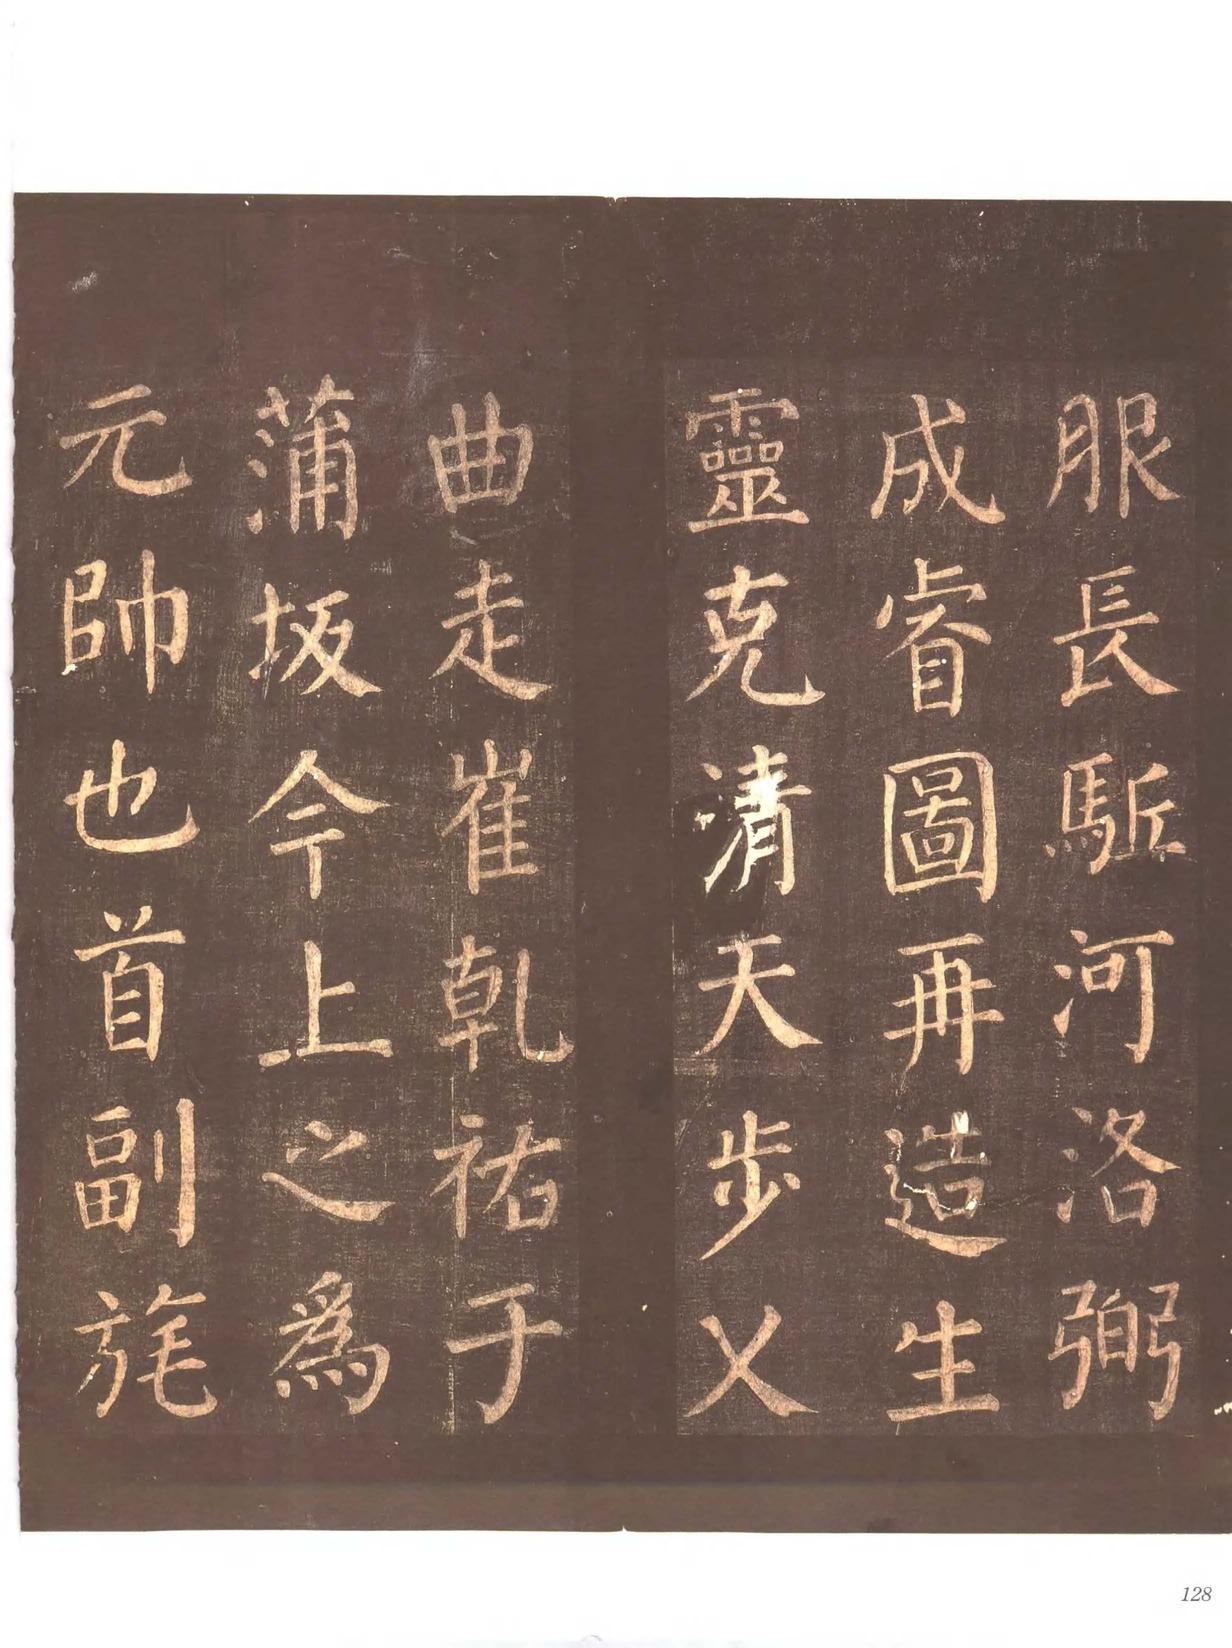 服長驅河洛弼
成睿圖再造生
靈克清天步乂
曲走崔乾祐于
蒲坂今上之為
元帥也首副旄
128